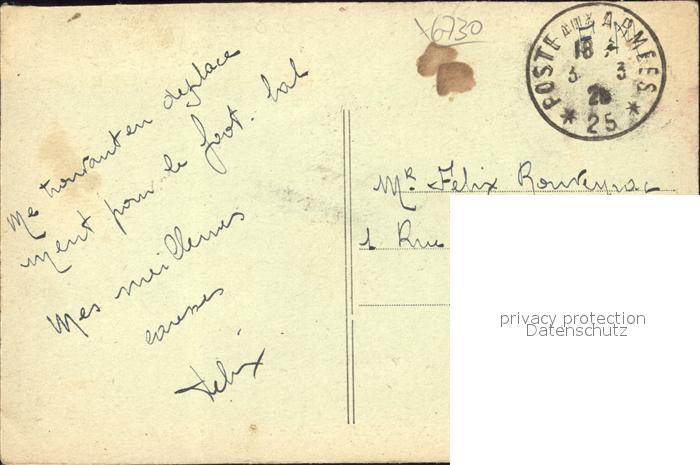 x6730
POSTE AUX ARMEES
18
3 3
25
* 25 *
Me trouvant en deplace
ment pour le foot-bal
Mes meilleures
caresses
Felix
Mr Felix Rouveyrac
1 Rue
privacy protection
Datenschutz